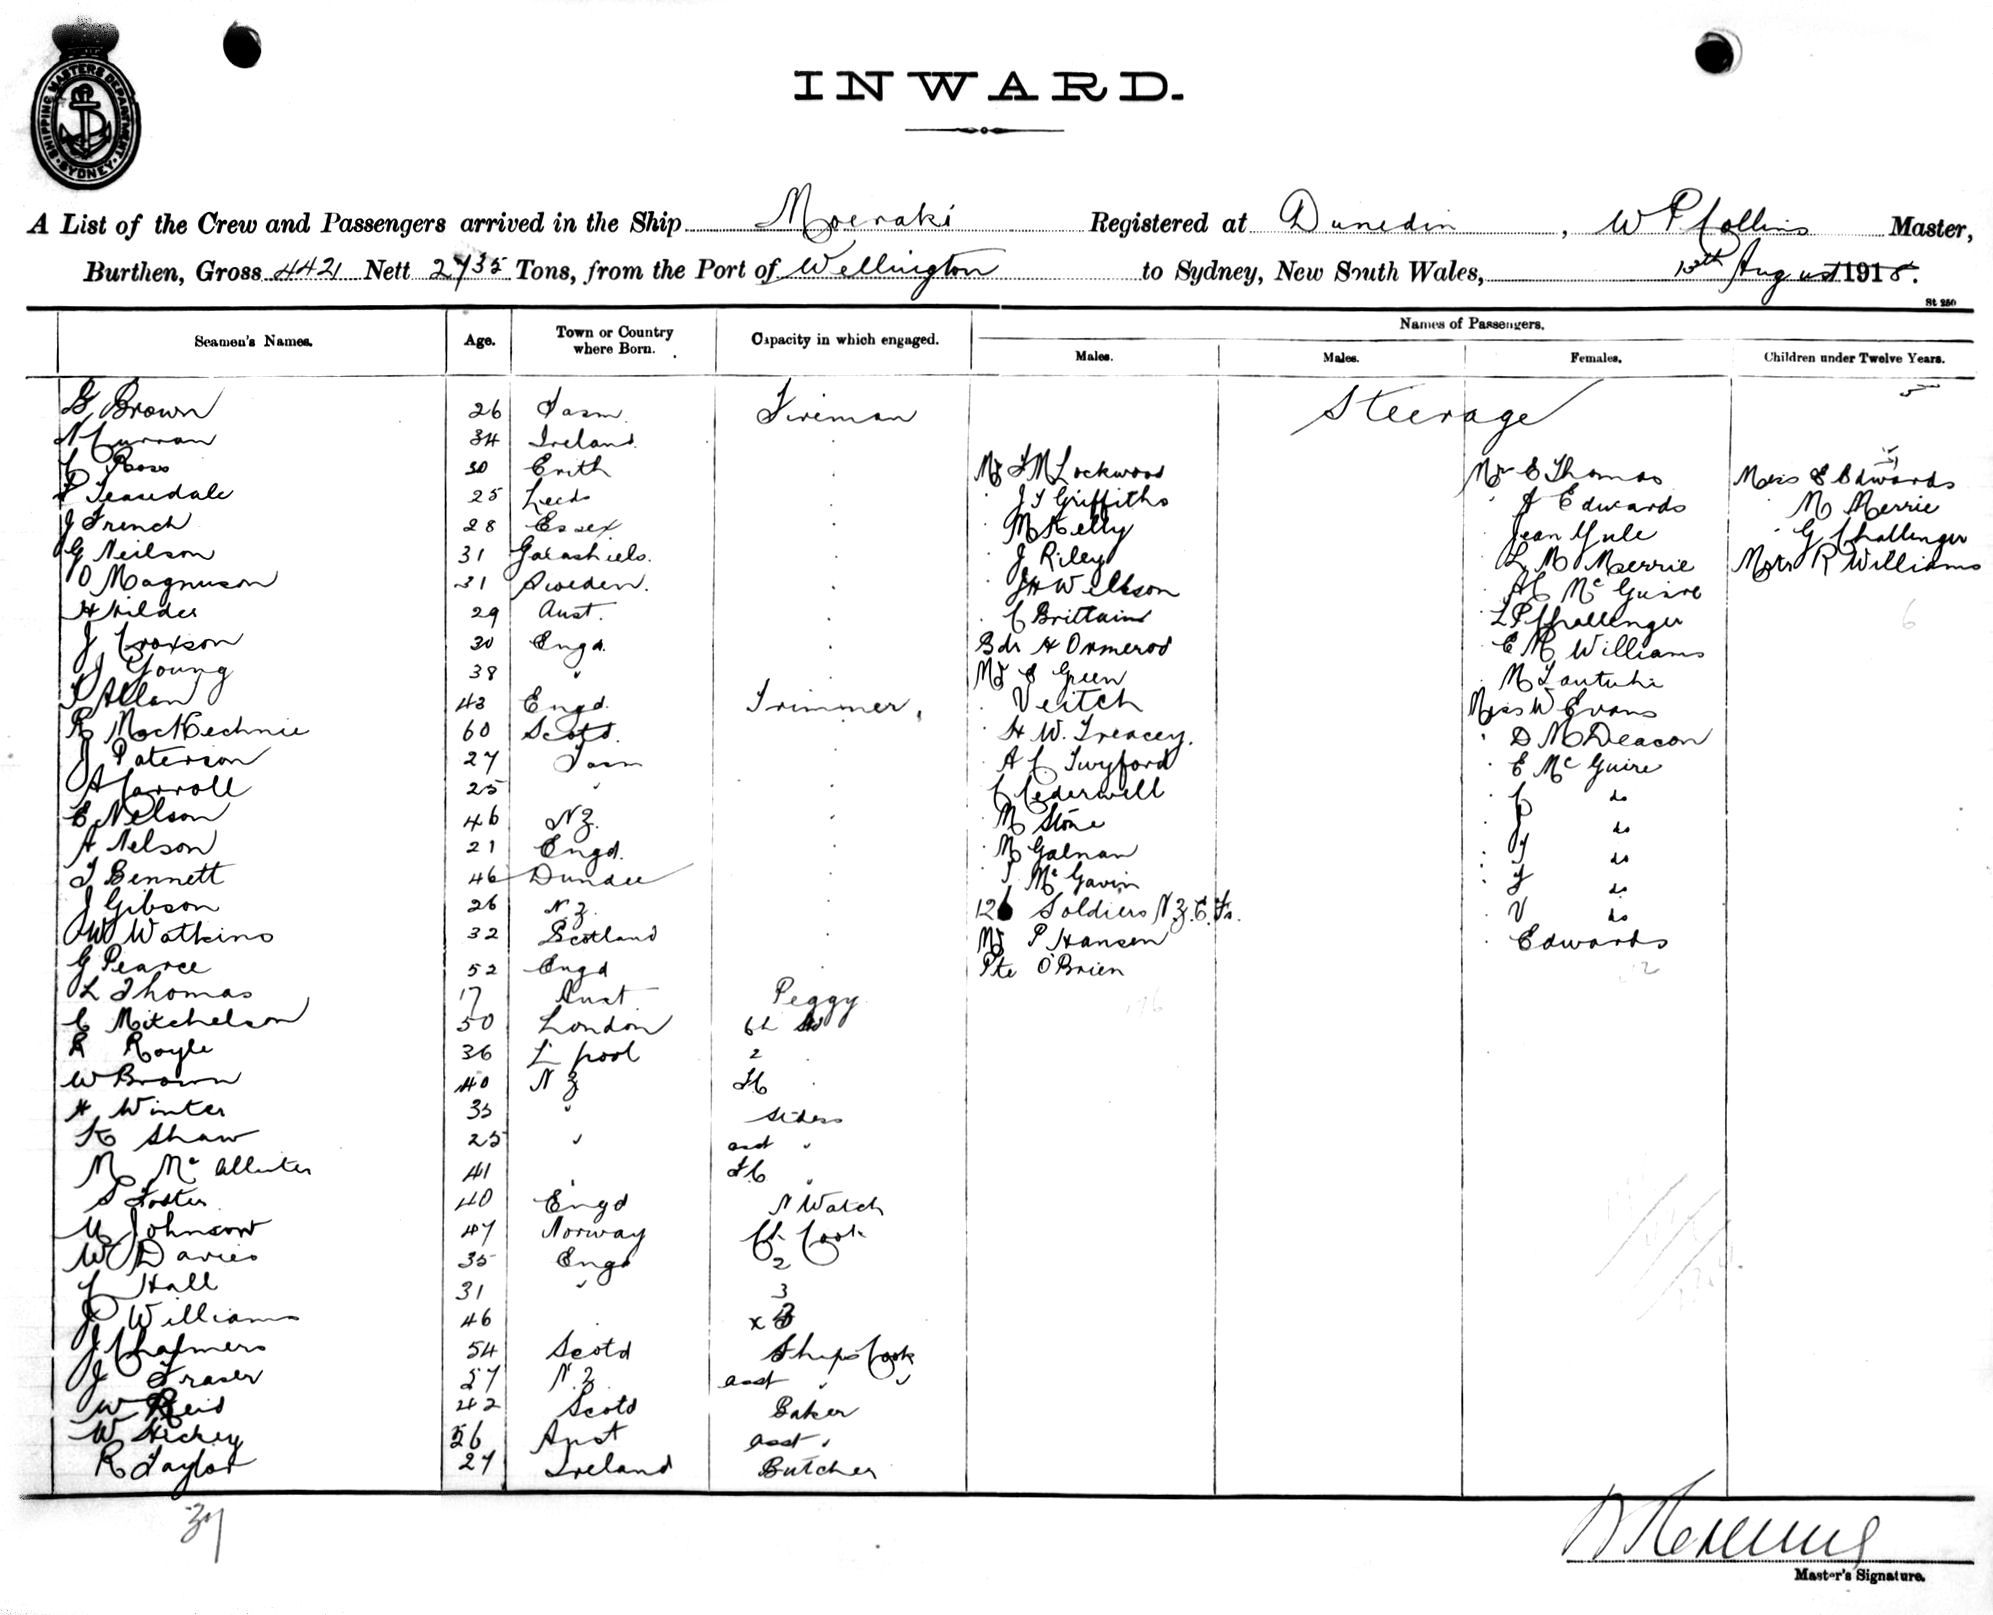 SHIPPING MASTERS DEPARTMENT
SYDNEY
INWARD.
A List of the Crew and Passengers arrived in the Ship Moeraki Registered at Dunedin, W P Collins Master,
Burthen, Gross 4421 Nett 2735 Tons, from the Port of Wellington to Sydney, New South Wales, 13th August 1915.
St 250
Seamen's Names. Age. Town or Country where Born. Capacity in which engaged. Names of Passengers.
Males. Males. Females. Children under Twelve Years.
Steerage
G Brown 26 Tasm. Fireman
N Curran 34 Ireland
C Ross 30 Erith
P Teasdale 25 Leeds
J French 28 Essex
G Neilson 31 Galashiels.
O Magnuson 31 Sweden.
H Hilder 29 Aust.
J Croxson 30 Engd.
J Young 38 "
T Allan 43 Engd. Trimmer,
R MacKechnie 60 Scotd.
J Paterson 27 Tasm
A Carroll 25 "
E Nelson 46 NZ.
A Nelson 21 Engd.
T Bennett 46 Dundee
J Gibson 26 N.Z.
W Watkins 32 Scotland
G Pearce 52 Engd
L Thomas 17 Aust Peggy
C Mitchelson 50 London
R Royle 36 L'pool 2
W Brown 40 NZ
H Winter 33 "
K Shaw 25 " asst "
M McAllister 41 "
S Foster 40 Engd N Watch
M Johnson 47 Norway Ch. Cook
W Davies 35 Engd 2
C Hall 31 " 3
J Williams 46 x
J Chalmers 54 Scotd Ships Cook
J Fraser 57 N.Z. asst " "
W Reid 42 Scotd Baker
W Hickey 56 Aust asst "
R Taylor 27 Ireland Butcher
37
Mr F M Lockwood
" J T Griffiths
" M Kelly
" J Riley
" J H Wilkson
" C Brittain
Bdr H Ormerod
Mr E Green
" Veitch
" H W. Treacey.
" A C Twyford
C Cederwell
M Stone
" M Galnan
T McGavin
126 Soldiers N.Z.E.Fs.
Mr P Hansen
Pte O'Brien
Mrs E Thomas
" J Edwards
" Jean Yule
" L M Merrie
" A C McGuire
" L P Challenger
" E M Williams
" M Tautuhi
Miss W Evans
" D M Deacon
" E McGuire
" C do
" J do
" J do
" V do
" Edwards
12
5
Miss E Edwards
M Merrie
" G Challenger
Mstr R Williams
6
Master's Signature.